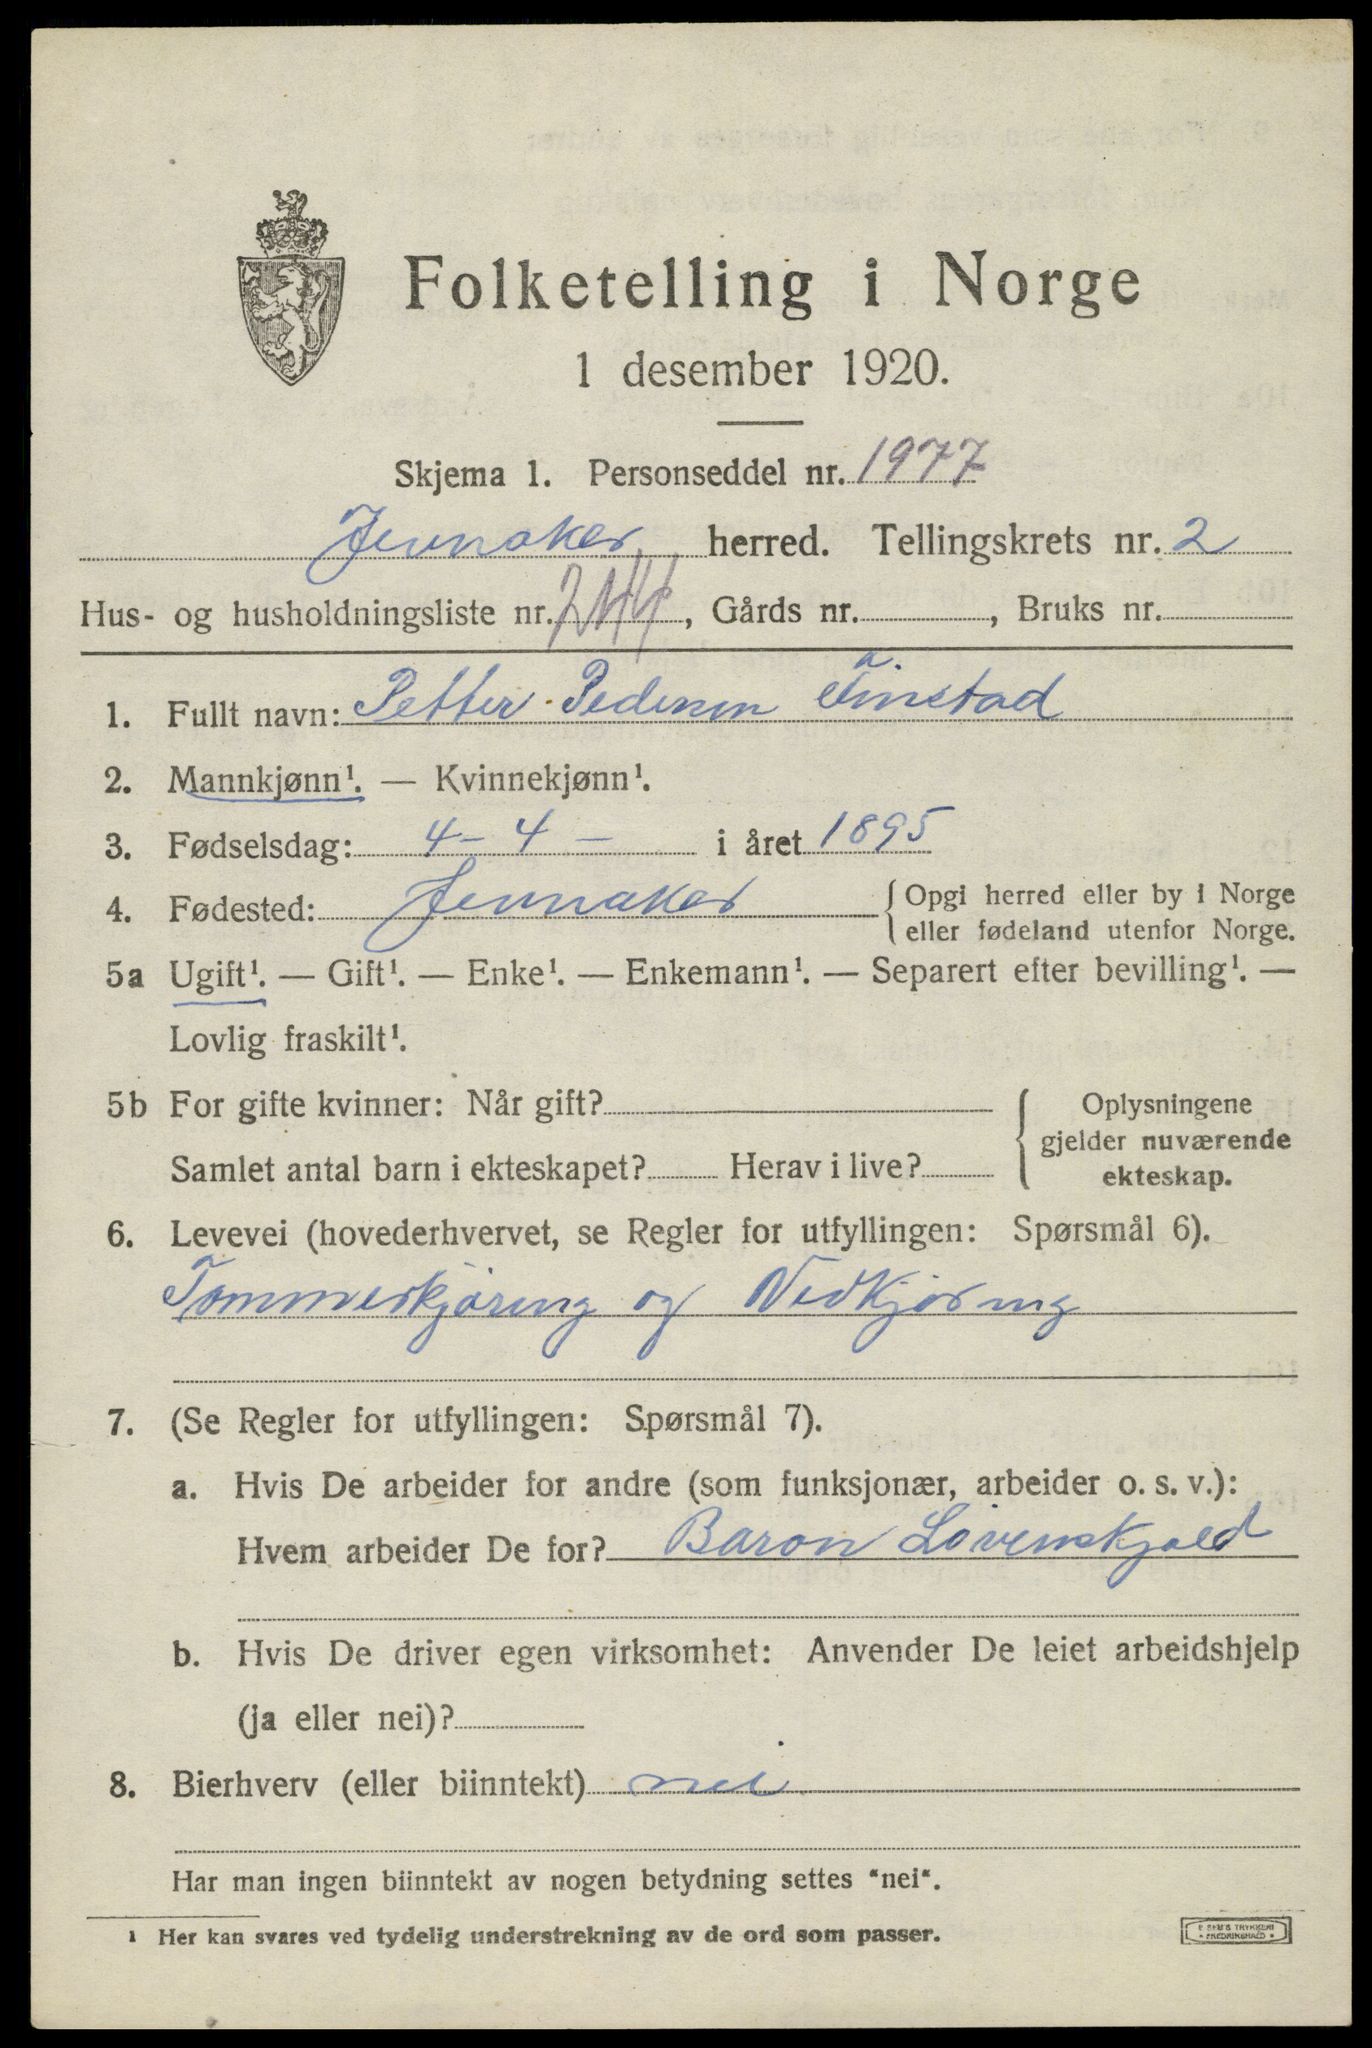 Folketelling i Norge
1 desember 1920.
Skjema 1. Personseddel nr. 1977
Jevnaker herred. Tellingskrets nr. 2
Hus- og husholdningsliste nr. 244, Gårds nr. , Bruks nr.
1. Fullt navn: Petter Pedersen Finstad
2. Mannkjønn¹. — Kvinnekjønn¹.
3. Fødselsdag: 4 - 4 - i året 1895
4. Fødested: Jevnaker { Opgi herred eller by i Norge
eller fødeland utenfor Norge.
5a Ugift¹. — Gift¹. — Enke¹. — Enkemann¹. — Separert efter bevilling¹. —
Lovlig fraskilt¹.
5b For gifte kvinner: Når gift? { Oplysningene
gjelder nuværende
ekteskap.
Samlet antal barn i ekteskapet? Herav i live?
6. Levevei (hovederhvervet, se Regler for utfyllingen: Spørsmål 6).
Tømmerkjøring og Vedkjøring
7. (Se Regler for utfyllingen: Spørsmål 7).
a. Hvis De arbeider for andre (som funksjonær, arbeider o. s. v.):
Hvem arbeider De for? Baron Løvenskjold
b. Hvis De driver egen virksomhet: Anvender De leiet arbeidshjelp
(ja eller nei)?
8. Bierhverv (eller biinntekt) nei
Har man ingen biinntekt av nogen betydning settes "nei".
¹ Her kan svares ved tydelig understrekning av de ord som passer.
E SEM'S TRYKKERI
* FREDRIKSHALD *